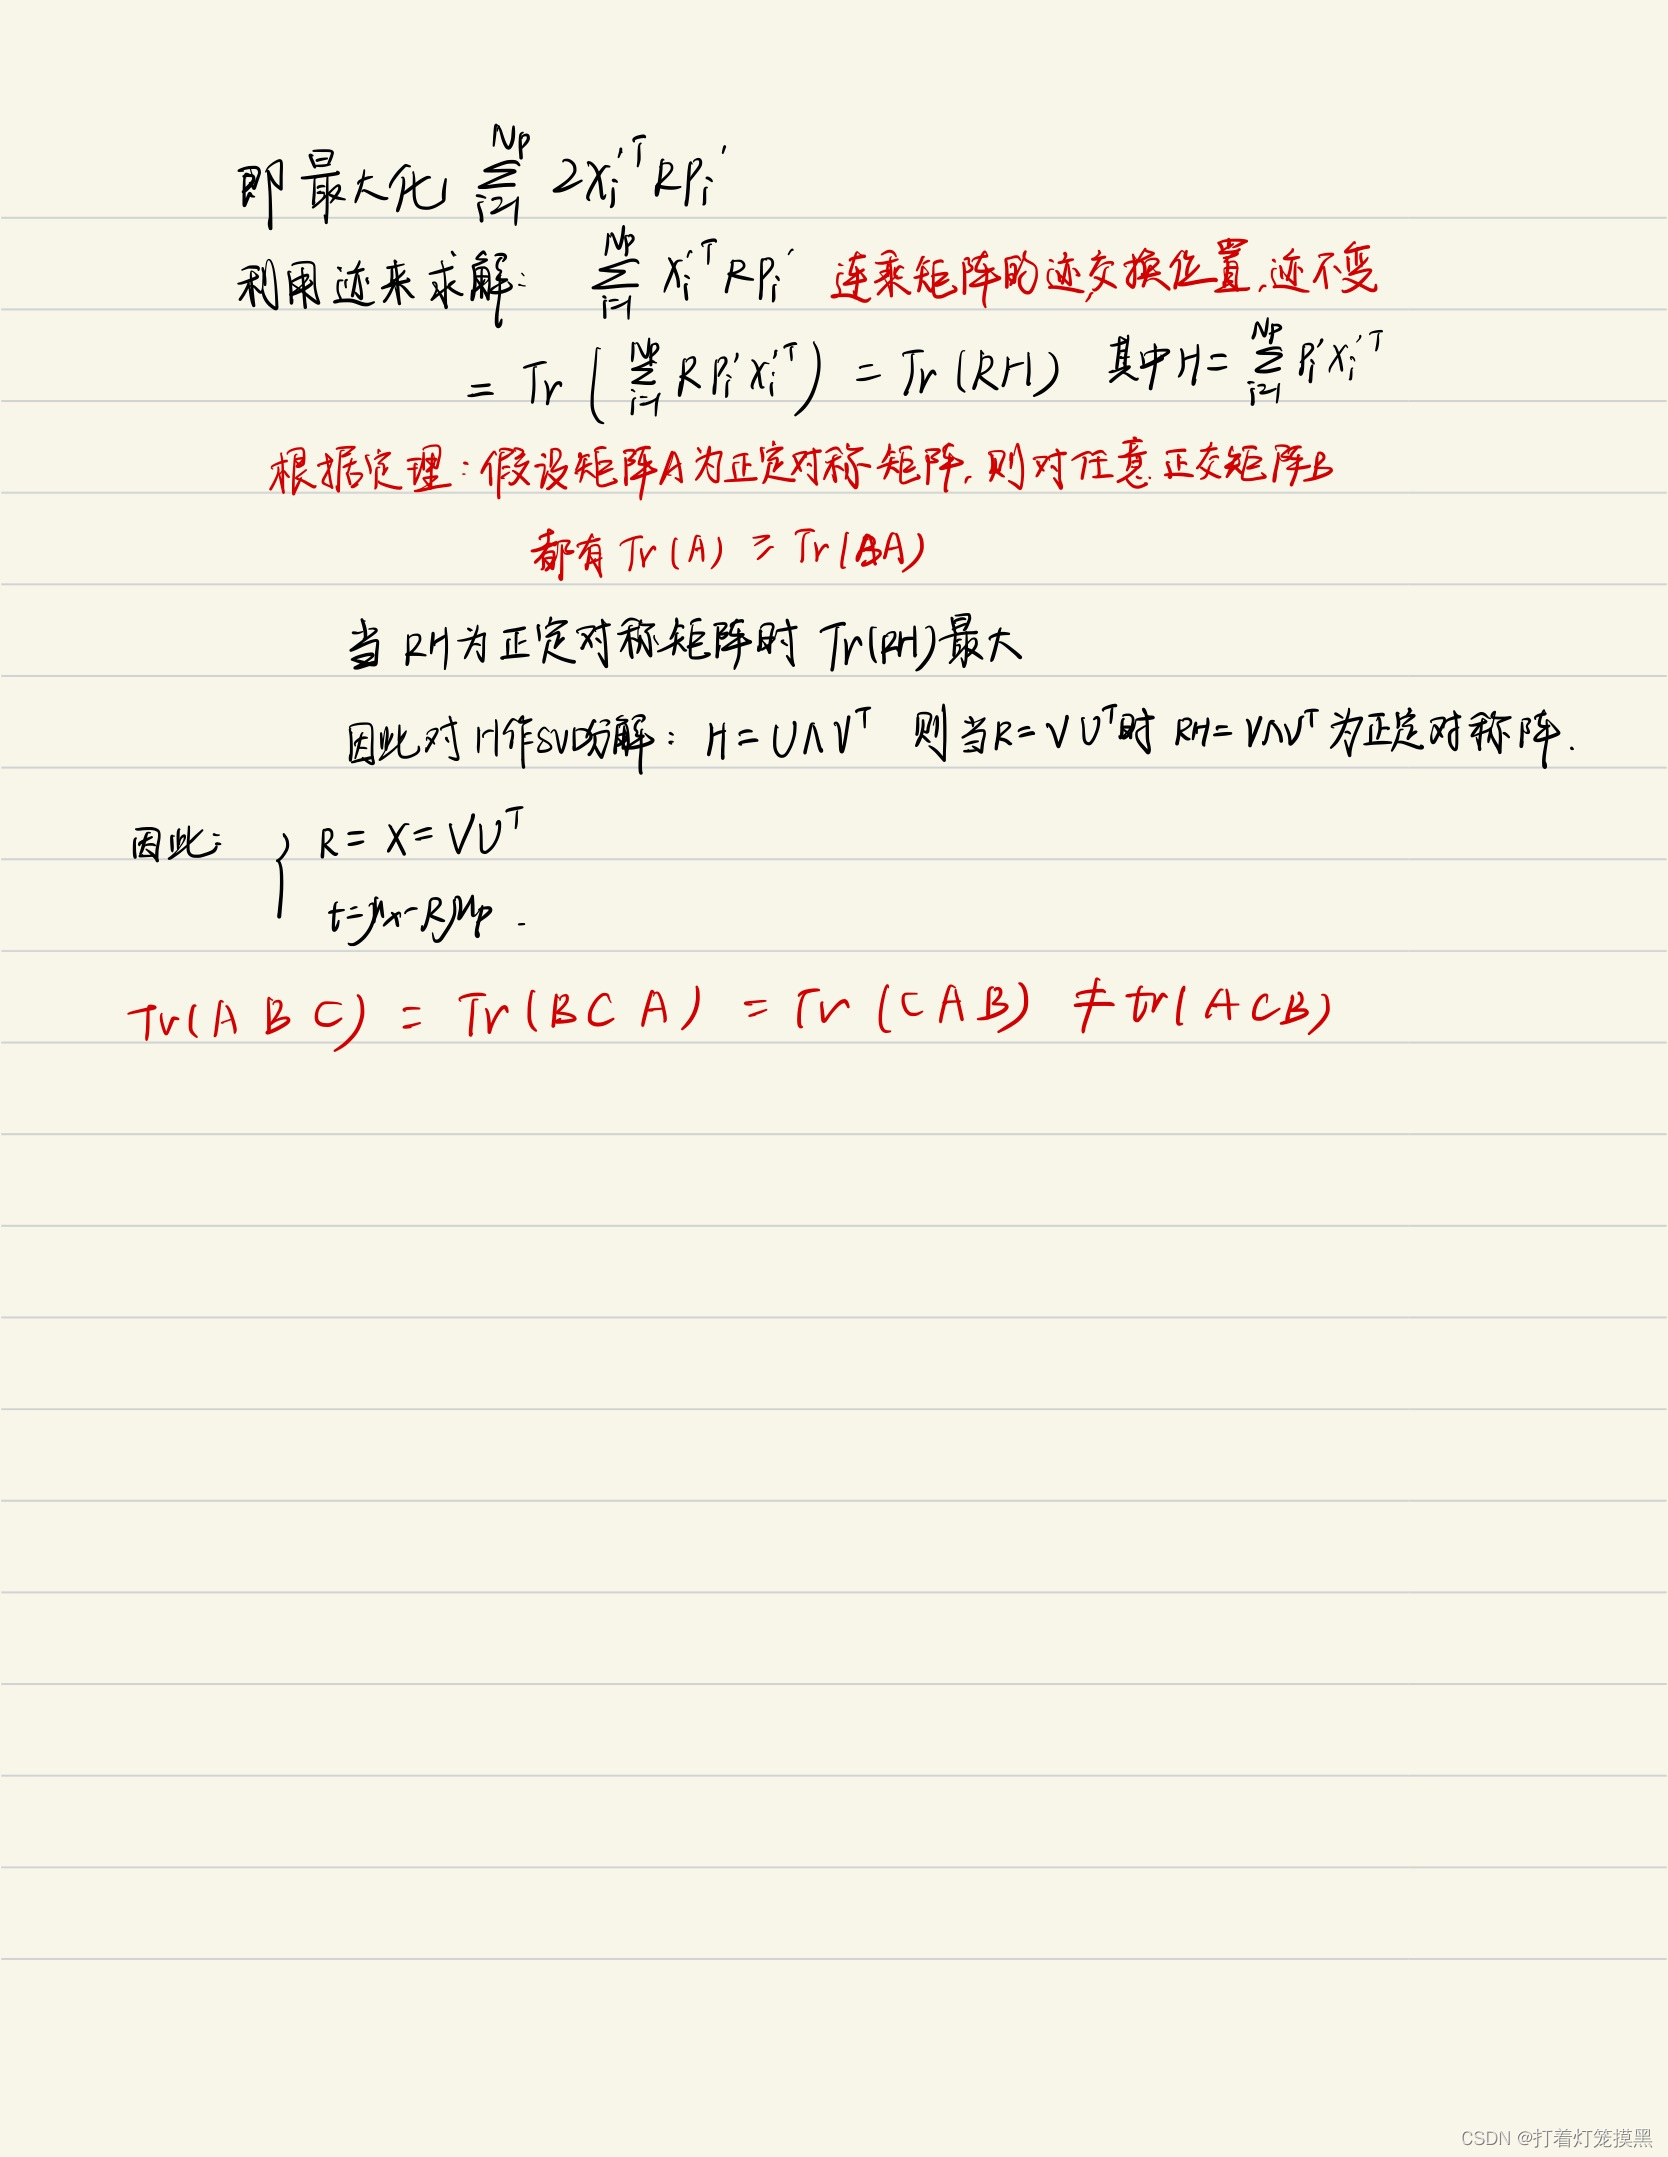 即最大化 ∑_{i=1}^{Np} 2x_i'^T R P_i'
利用迹来求解: ∑_{i=1}^{Np} x_i'^T R P_i' 连乘矩阵的迹,交换位置,迹不变
= Tr ( ∑_{i=1}^{Np} R P_i' x_i'^T ) = Tr (RH) 其中H = ∑_{i=1}^{Np} P_i' x_i'^T
根据定理:假设矩阵A为正定对称矩阵,则对任意正交矩阵B
都有 Tr(A) ≥ Tr(BA)
当 RH为正定对称矩阵时 Tr(RH)最大
因此对H作SVD分解: H = U Λ V^T 则当R = V U^T时 RH = VΛV^T 为正定对称阵.
因此: { R = X = VU^T
t = μ_x - Rμ_p .
Tr(A B C) = Tr(B C A) = Tr (C A B) ≠ tr(A C B)
CSDN @打着灯笼摸黑